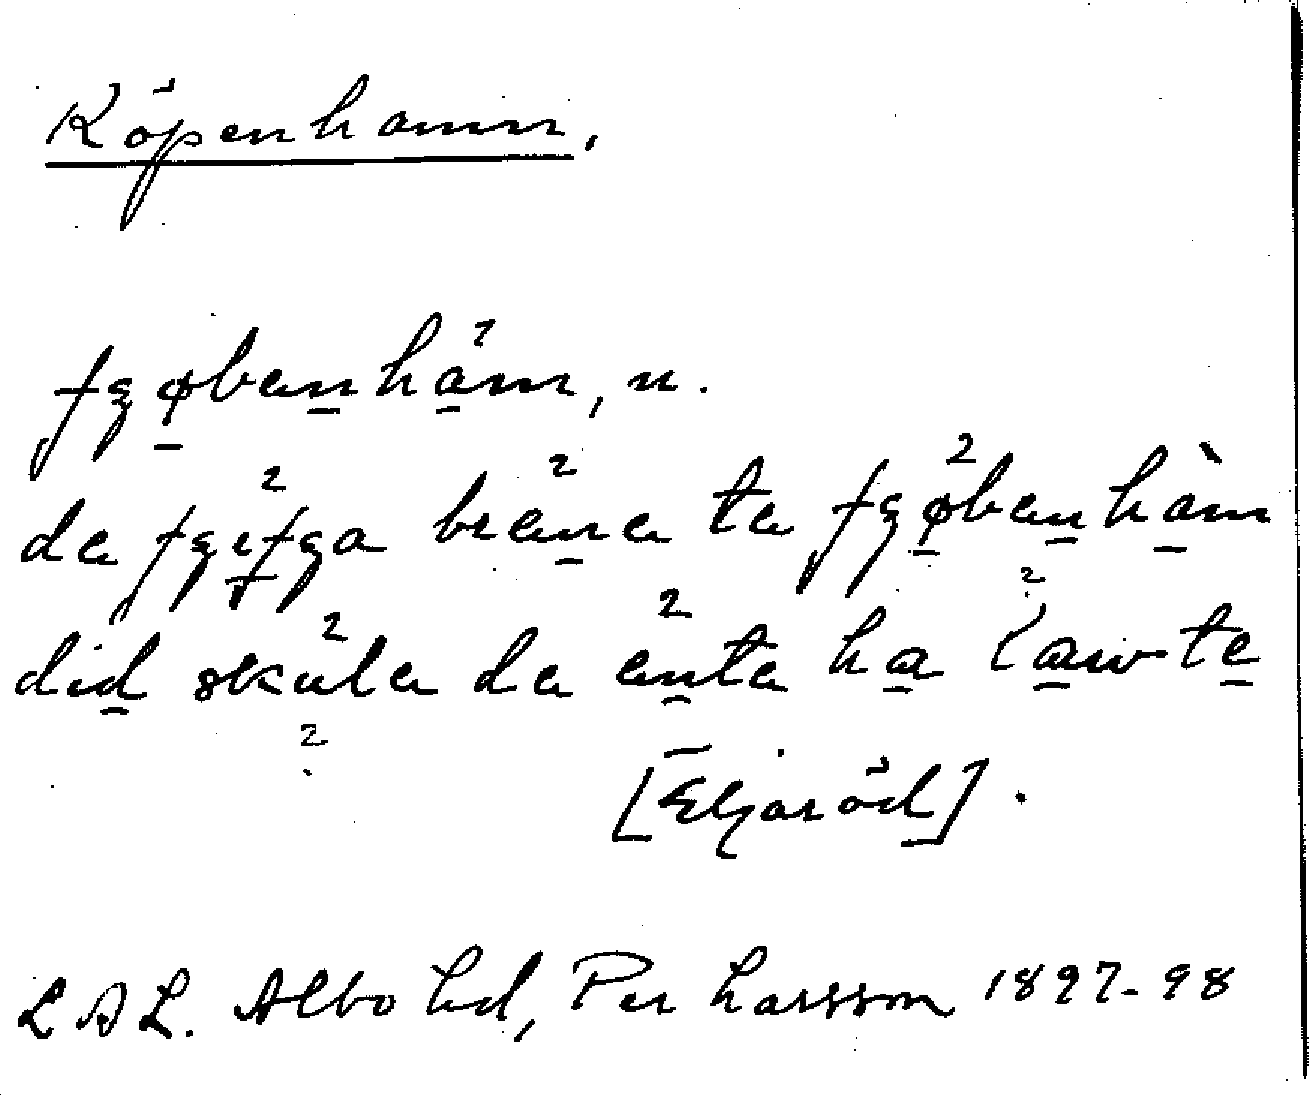 Köpenhamn.
fȝøbenhåm, n.
de fȝifȝa brena te fȝøbenhåm
did skule de ente ha lawte
[Eljaröd].
LAL. Albo hd, Per Larsson 1897-98